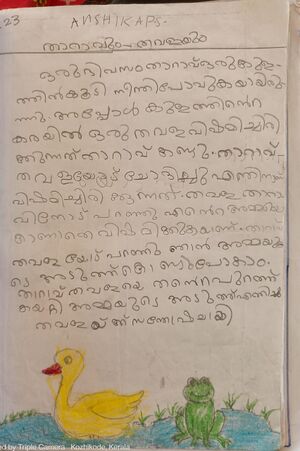 23
ANSHIKA P.S.
താറാവും തവളയും
ഒരു ദിവസം താറാവ് ഒരു കുള
ത്തിൽകൂടി നീന്തി പോവുകയായിരു
ന്നു. അപ്പോൾ കുളത്തിന്റെ
കരയിൽ ഒരു തവള വിഷമിച്ചിരി
ക്കുന്നത് താറാവ് കണ്ടു. താറാവ്
തവളയോട് ചോദിച്ചു എന്തിനാണ്
വിഷമിച്ചിരിക്കുന്നത്. തവള താറാ
വിനോട് പറഞ്ഞു എന്റെ അമ്മയെ
കാണാതെ വിഷമിക്കുകയാണ്. താറാവ്
തവളയോട് പറഞ്ഞു ഞാൻ അമ്മയു
ടെ അടുത്ത് കൊണ്ടുപോകാം.
താറാവ് തവളയെ തന്റെ പുറത്ത്
കയറ്റി അമ്മയുടെ അടുത്ത് എത്തിച്ചു
തവളയ്ക്ക് സന്തോഷമായി
ed by Triple Camera Kozhikode, Kerala